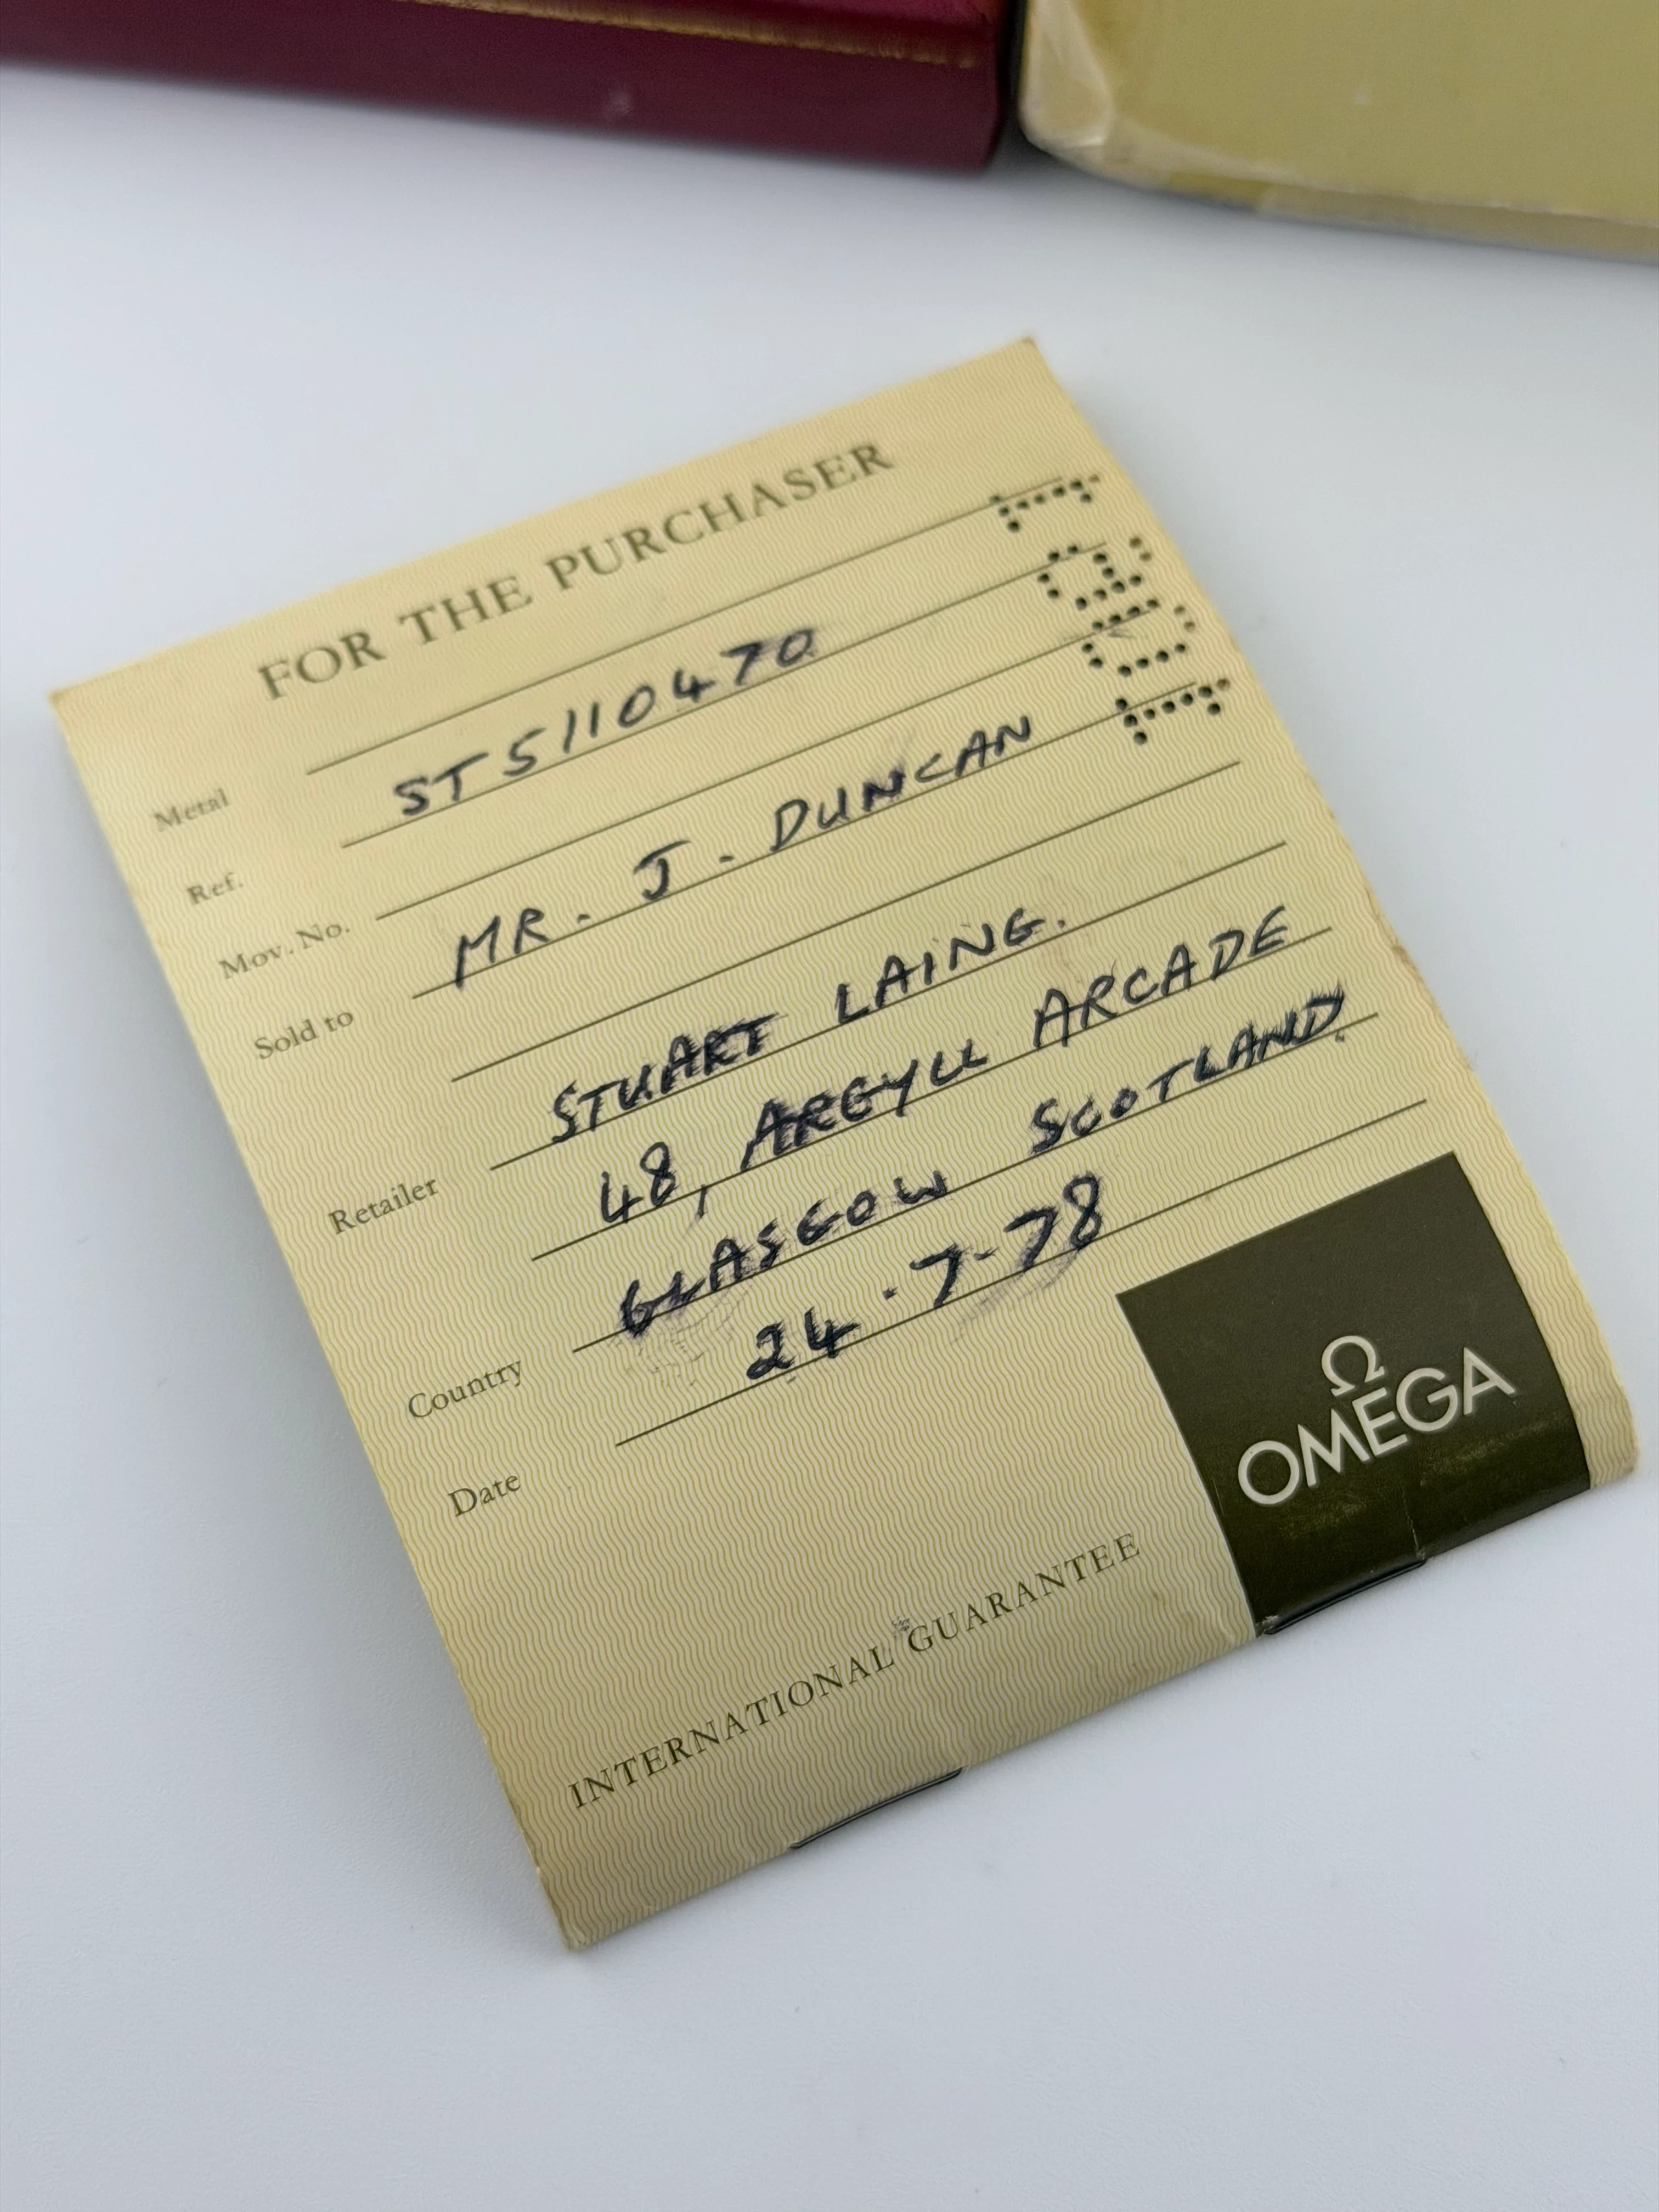 FOR THE PURCHASER
Metal
Ref. ST 5110470
Mov. No.
Sold to MR. J. DUNCAN
Retailer STUART LAING.
48, ARGYLL ARCADE
Country GLASGOW SCOTLAND.
Date 24.7-78
Ω
OMEGA
INTERNATIONAL GUARANTEE